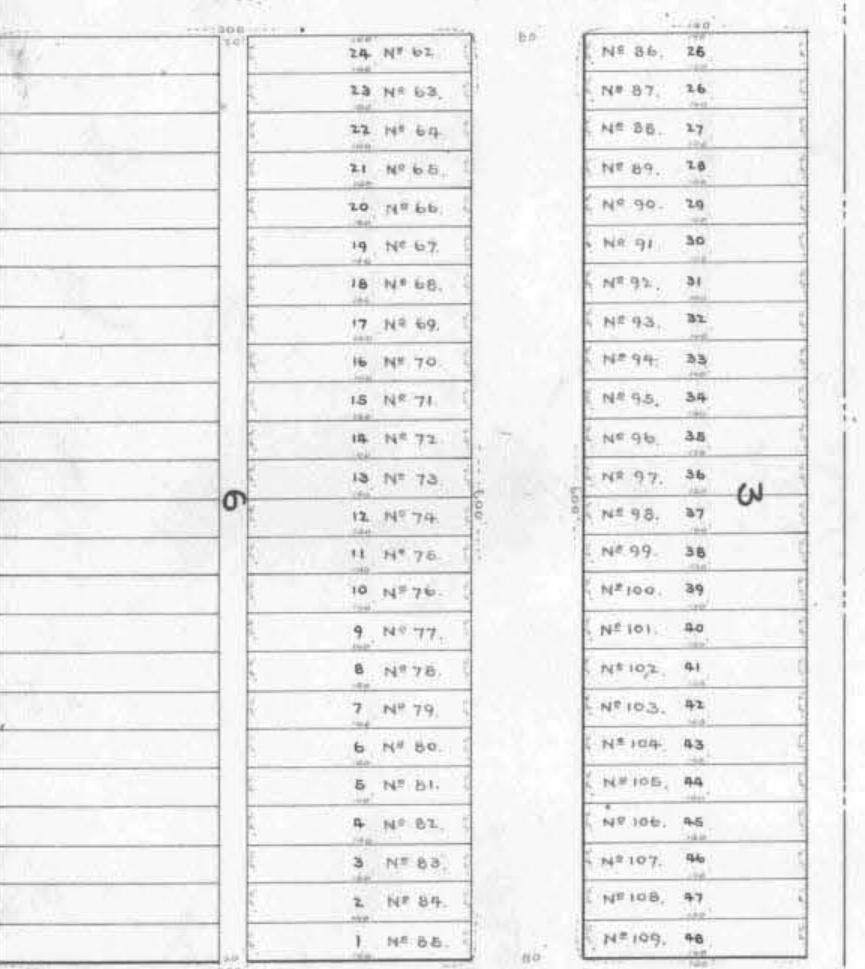 300
80
24 Nº 62.
23 Nº 63.
22 Nº 64.
21 Nº 65.
20 Nº 66.
19 Nº 67.
18 Nº 68.
17 Nº 69.
16 Nº 70.
15 Nº 71.
14 Nº 72.
13 Nº 73.
12 Nº 74.
11 Nº 75.
10 Nº 76.
9 Nº 77.
8 Nº 78.
7 Nº 79.
6 Nº 80.
5 Nº 81.
4 Nº 82.
3 Nº 83.
2 Nº 84.
1 Nº 85.
6
600
600
Nº 86. 25
Nº 87. 26
Nº 88. 27
Nº 89. 28
Nº 90. 29
Nº 91. 30
Nº 92. 31
Nº 93. 32
Nº 94. 33
Nº 95. 34
Nº 96. 35
Nº 97. 36
Nº 98. 37
Nº 99. 38
Nº 100. 39
Nº 101. 40
Nº 102. 41
Nº 103. 42
Nº 104. 43
Nº 105. 44
Nº 106. 45
Nº 107. 46
Nº 108. 47
Nº 109. 48
3
80